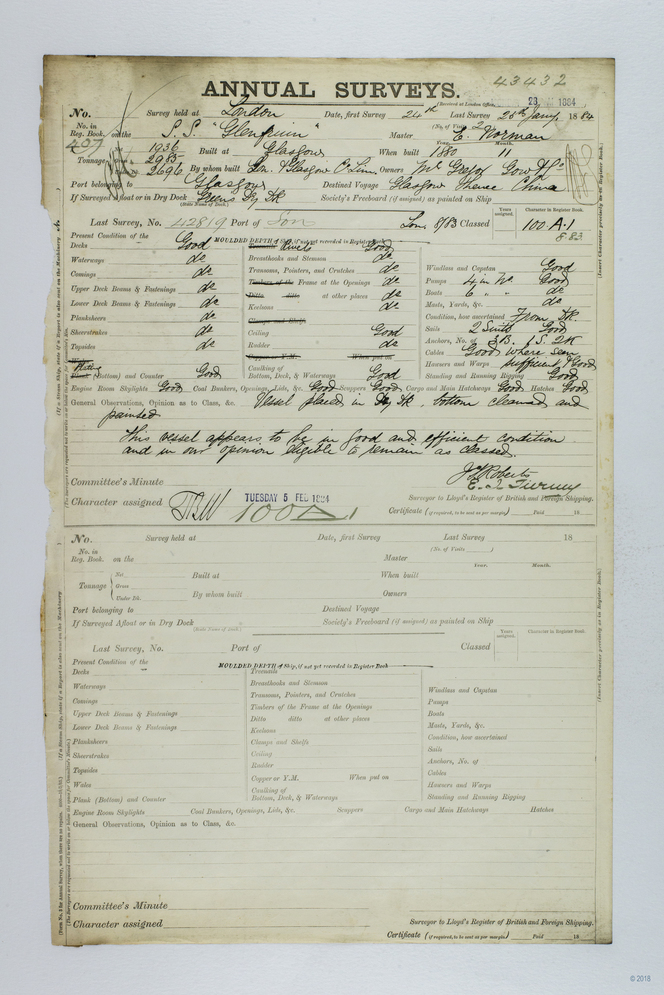 43432
ANNUAL SURVEYS.
(Received at London Office, 29 1884
No. Survey held at London Date, first Survey 24th Last Survey 28th Jany 1884
No. in Reg. Book. on the S.S. "Glenfruin" (No. of Visits 2) Master E. Norman
407 Tonnage 1936 Built at Glasgow When built 1880 Month. 11
2985
2696 By whom built Ln. & Glasgow Owners McGregor Gow & Co
Port belonging to Glasgow Destined Voyage Glasgow thence China
If Surveyed Afloat or in Dry Dock Greens Dry Dk Society's Freeboard (if assigned) as painted on Ship
(State Name of Dock.)
Years assigned. Character in Register Book.
Last Survey, No. 42819 Port of Lon Lon 8/83 Classed 100 A.1
8 83
Present Condition of the MOULDED DEPTH of Ship, if not yet recorded in Register Book
Decks Good Good
Waterways do Breasthooks and Stemson do
Comings do Transoms, Pointers, and Crutches do Windlass and Capstan Good
Upper Deck Beams & Fastenings do Timbers of the Frame at the Openings do Pumps 4 in No. Good
Lower Deck Beams & Fastenings do Ditto ditto at other places do Boats 6 " " do
Planksheers do Keelsons do Masts, Yards, &c. do
Sheerstrakes do Clamps and Shelfs Condition, how ascertained From Dk.
Topsides do Ceiling Good Sails 2 Suits Good
Rudder do Anchors, No. of 3 B. 1 S. 2 K
Copper or Y.M. When put on Cables Good where seen
Plating (Bottom) and Counter Good Caulking of Bottom, Deck, & Waterways Good Hawsers and Warps Sufficient & Good
Standing and Running Rigging Good
Engine Room Skylights Good Coal Bunkers, Openings, Lids, &c. Good Scuppers Good Cargo and Main Hatchways Good Hatches Good
General Observations, Opinion as to Class, &c. Vessel placed in Dry Dk, bottom cleaned and
painted
This vessel appears to be in good and efficient condition
and in our opinion eligible to remain as classed.
J Roberts
Committee's Minute E. Tierney
Character assigned TUESDAY 5 FEB 1884 Surveyor to Lloyd's Register of British and Foreign Shipping.
100A1 Certificate (if required, to be sent as per margin) Paid 18
No. Survey held at Date, first Survey Last Survey 18
No. in Reg. Book. on the (No. of Visits ) Master
Years. Month.
Tonnage Net Gross Under Dk. Built at When built
By whom built Owners
Port belonging to Destined Voyage
If Surveyed Afloat or in Dry Dock Society's Freeboard (if assigned) as painted on Ship
(State Name of Dock.)
Years assigned. Character in Register Book.
Last Survey, No. Port of Classed
Present Condition of the MOULDED DEPTH of Ship, if not yet recorded in Register Book
Decks Treenails
Waterways Breasthooks and Stemson
Comings Transoms, Pointers, and Crutches Windlass and Capstan
Upper Deck Beams & Fastenings Timbers of the Frame at the Openings Pumps
Lower Deck Beams & Fastenings Ditto ditto at other places Boats
Planksheers Keelsons Masts, Yards, &c.
Sheerstrakes Clamps and Shelfs Condition, how ascertained
Topsides Ceiling Sails
Wales Rudder Anchors, No. of
Copper or Y.M. When put on Cables
Plank (Bottom) and Counter Caulking of Bottom, Deck, & Waterways Hawsers and Warps
Standing and Running Rigging
Engine Room Skylights Coal Bunkers, Openings, Lids, &c. Scuppers Cargo and Main Hatchways Hatches
General Observations, Opinion as to Class, &c.
Committee's Minute
Character assigned Surveyor to Lloyd's Register of British and Foreign Shipping.
Certificate (if required, to be sent as per margin) Paid 18
© 2018